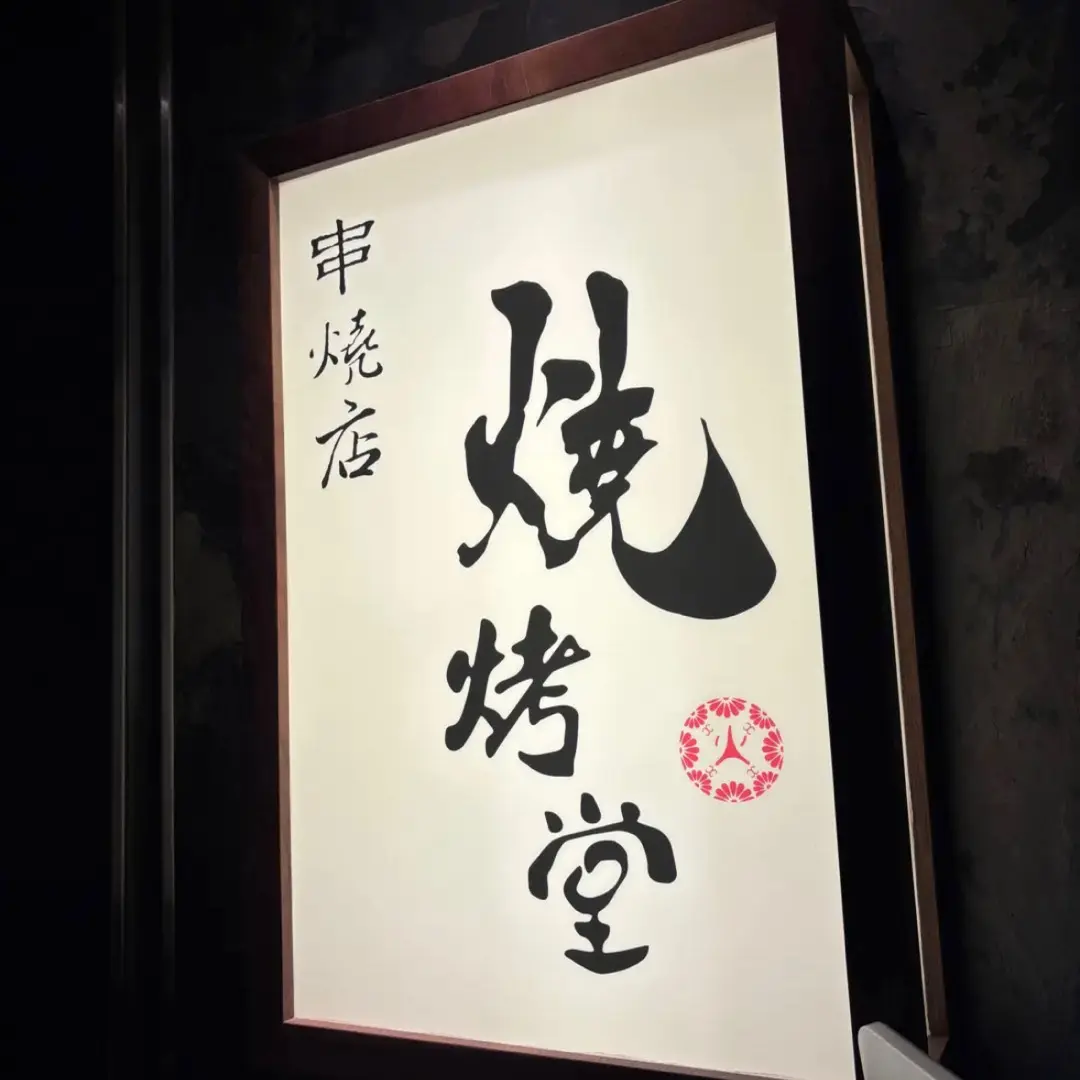 燒烤堂
串燒店
火